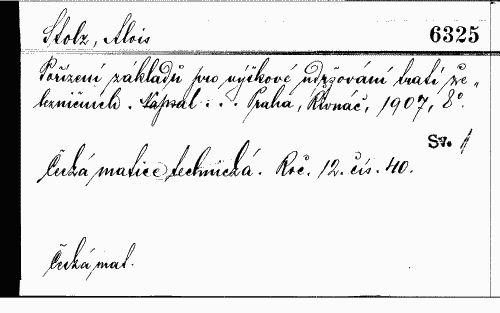 Stolz, Alois 6325
Pořízení základů pro výškové udržování tratí že-
lezničních. Napsal ... Praha, Rivnáč, 1907, 8°.
Sv. 1
Česká matice technická. Roč. 12. čís. 40.
Česká mat.